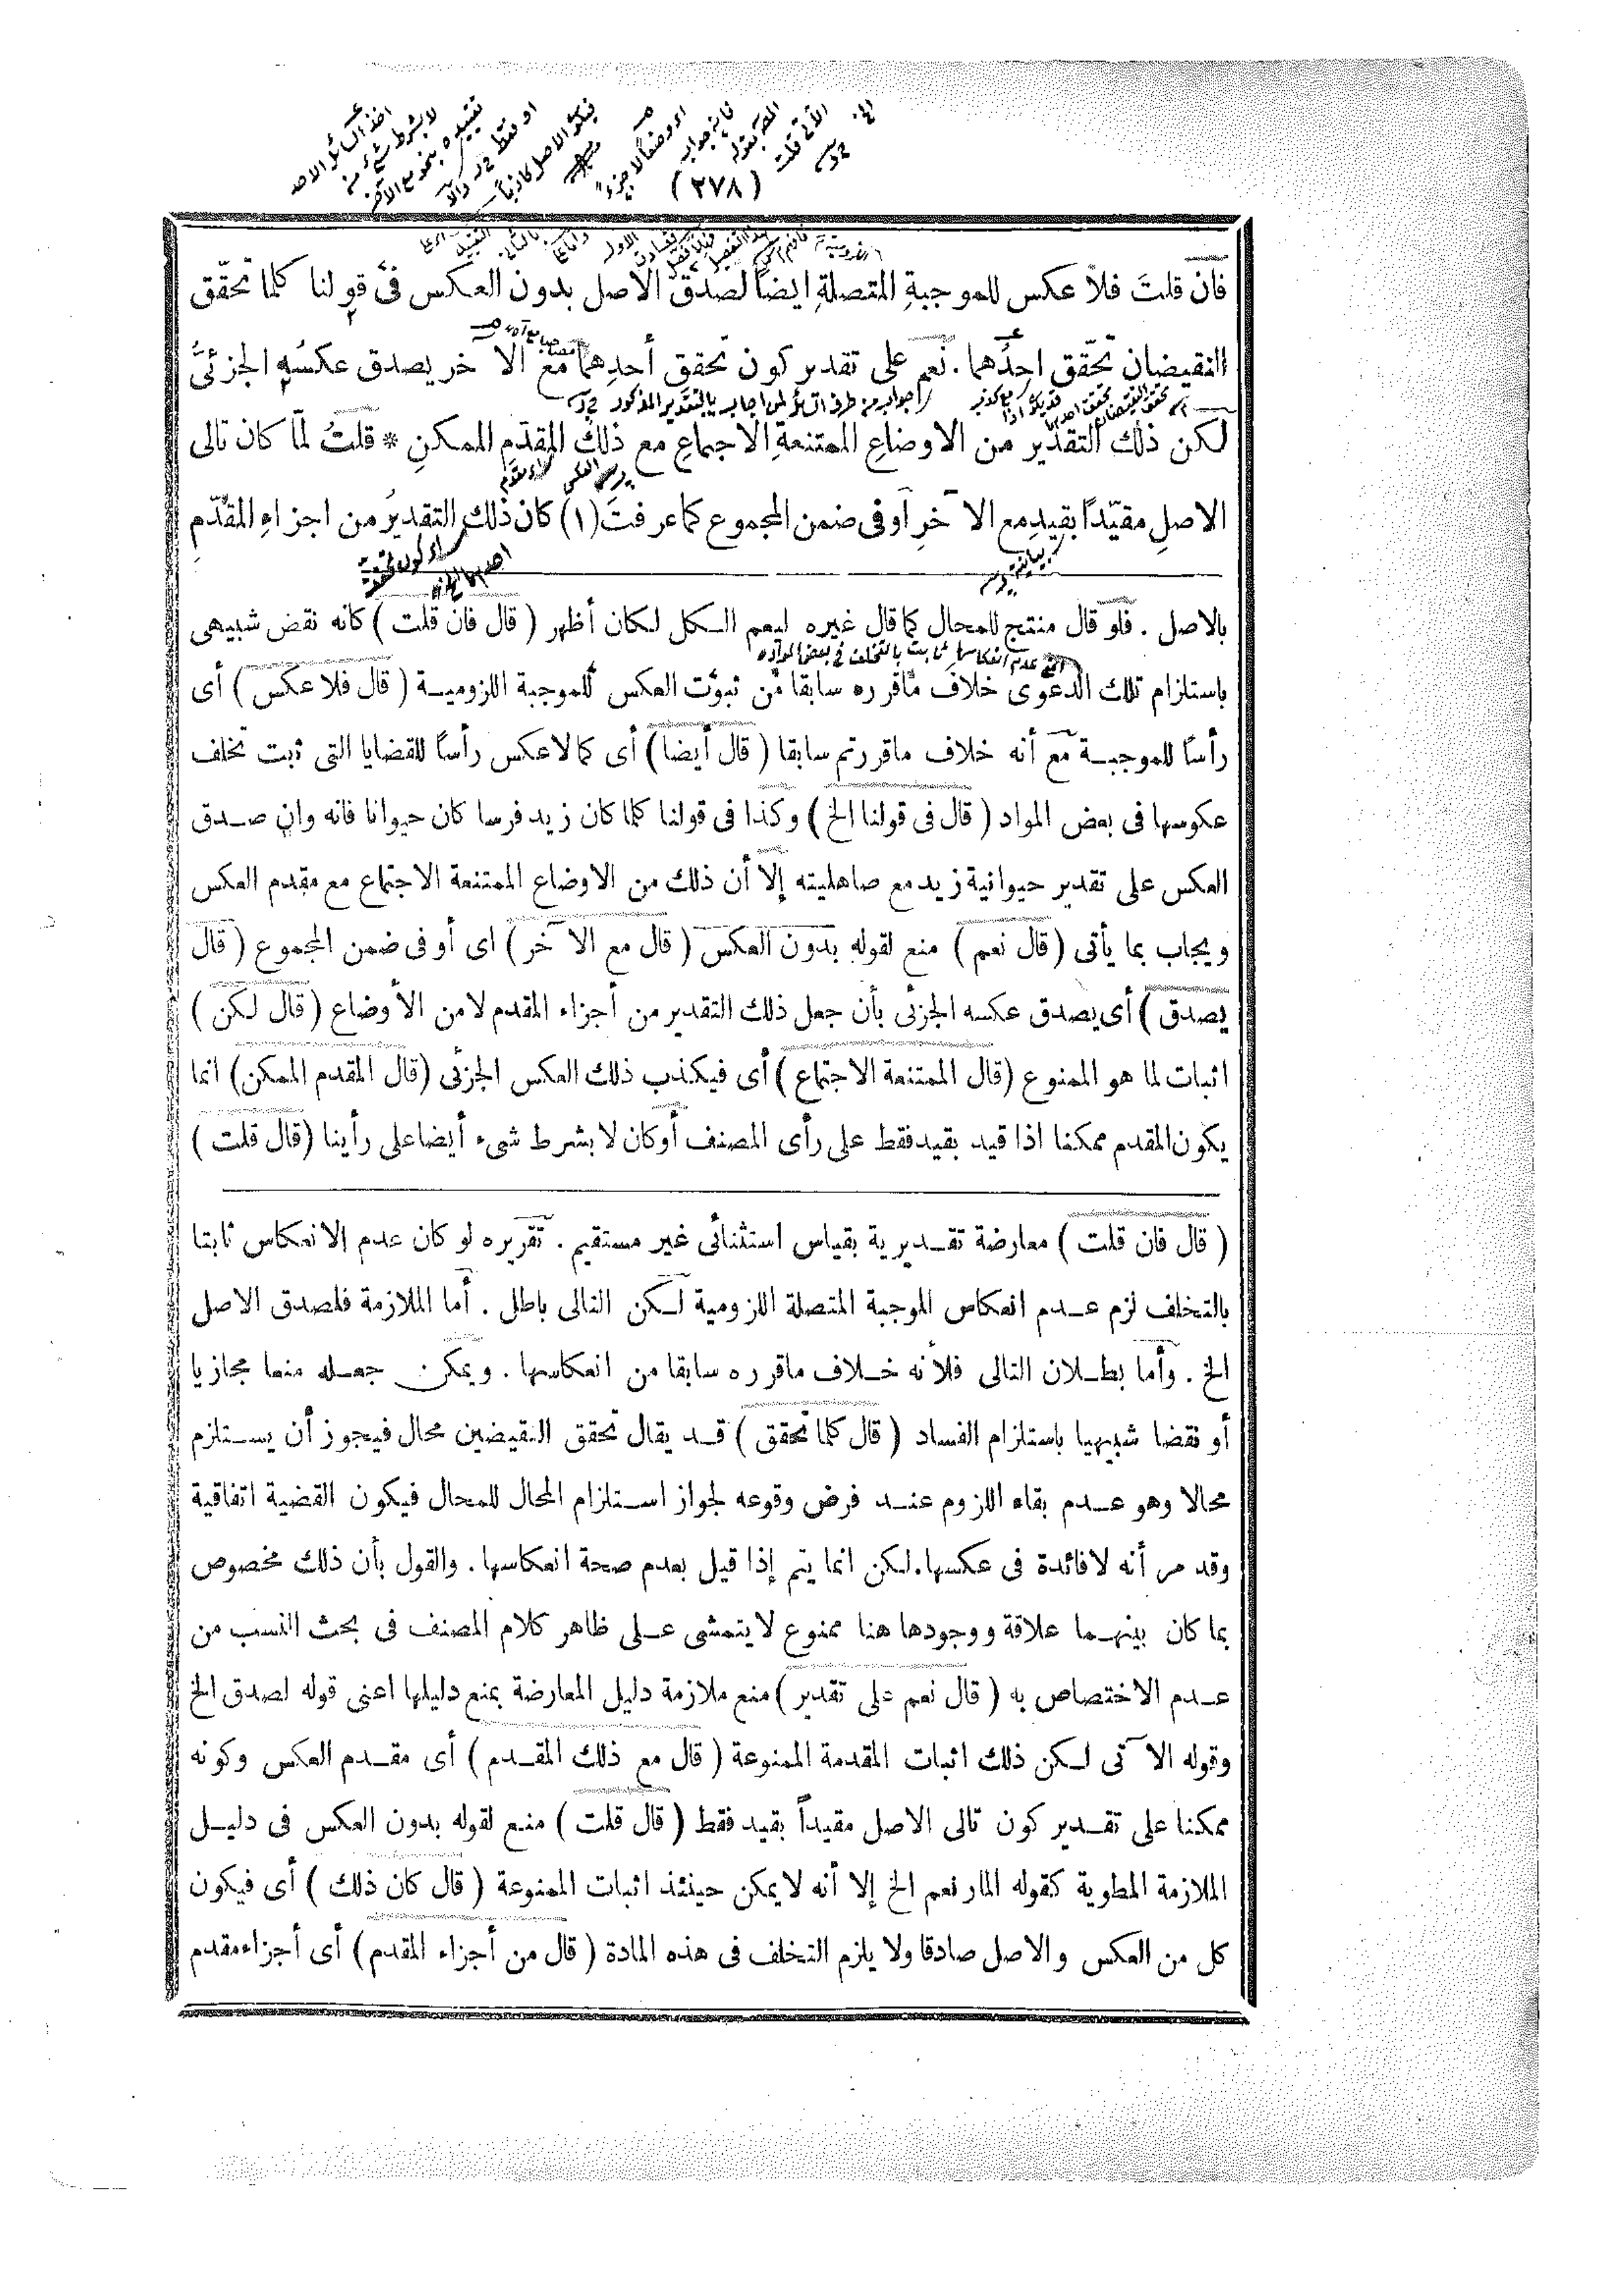 (٢٧٨)
فان قلتَ فلا عكس للموجبةِ المتصلةِ ايضاً لصدق الاصل بدون العكس فى قولنا كلما تحقّق
النقيضان تحقّق احدُهما . نعم على تقدير كون تحقق أحدِهما مع الآخر يصدق عكسُه الجزئىُّ
لكن ذلك التقدير من الاوضاعِ الممتنعةِ الاجتماعِ مع ذلك المقدّم الممكنِ * قلتُ لمّا كان تالى
الاصلِ مقيّداً بقيدِ مع الآخرِ أو فى ضمن المجموع كما عرفتَ (١) كان ذلك التقديرُ من اجزاءِ المقدّمِ
بالاصل . فلو قال منتج للمحال كما قال غيره ليعم الكل لكان أظهر ( قال فان قلت ) كانه نقض شبيهى
باستلزام تلك الدعوى خلاف ماقرره سابقا من ثبوت العكس للموجبة اللزومية ( قال فلا عكس ) أى
رأسًا للموجبة مع أنه خلاف ماقررتم سابقا ( قال أيضا ) أى كما لاعكس رأسًا للقضايا التى ثبت تخلف
عكوسها فى بعض المواد ( قال فى قولنا الخ ) وكذا فى قولنا كلما كان زيد فرسا كان حيوانا فانه وان صدق
العكس على تقدير حيوانية زيد مع صاهليته إلا أن ذلك من الاوضاع الممتنعة الاجتماع مع مقدم العكس
ويجاب بما يأتى ( قال نعم ) منع لقوله بدون العكس ( قال مع الآخر ) اى أو فى ضمن المجموع ( قال
يصدق ) أى يصدق عكسه الجزئى بأن جعل ذلك التقدير من أجزاء المقدم لا من الأوضاع ( قال لكن )
اثبات لما هو الممنوع ( قال الممتنعة الاجتماع ) أى فيكذب ذلك العكس الجزئى ( قال المقدم الممكن ) انما
يكون المقدم ممكنا اذا قيد بقيد فقط على رأى المصنف أو كان لا بشرط شىء أيضا على رأينا ( قال قلت )
( قال فان قلت ) معارضة تقديرية بقياس استثنائى غير مستقيم . تقريره لو كان عدم الانعكاس ثابتا
بالتخلف لزم عدم انعكاس الموجبة المتصلة اللزومية لكن التالى باطل . أما الملازمة فلصدق الاصل
الخ . وأما بطلان التالى فلأنه خلاف ماقرره سابقا من انعكاسها . ويمكن جعله منعا مجازيا
أو نقضا شبيهيا باستلزام الفساد ( قال كلما تحقق ) قد يقال تحقق النقيضين محال فيجوز أن يستلزم
محالا وهو عدم بقاء اللزوم عند فرض وقوعه لجواز استلزام المحال للمحال فيكون القضية اتفاقية
وقد مر أنه لا فائدة فى عكسها . لكن انما يتم إذا قيل بعدم صحة انعكاسها . والقول بأن ذلك مخصوص
بما كان بينهما علاقة ووجودها هنا ممنوع لايتمشى على ظاهر كلام المصنف فى بحث النسب من
عدم الاختصاص به ( قال نعم على تقدير ) منع ملازمة دليل المعارضة بمنع دليلها اعنى قوله لصدق الخ
وقوله الآتى لكن ذلك اثبات المقدمة الممنوعة ( قال مع ذلك المقدم ) أى مقدم العكس وكونه
ممكنا على تقدير كون تالى الاصل مقيداً بقيد فقط ( قال قلت ) منع لقوله بدون العكس فى دليل
الملازمة المطوية كقوله المار نعم الخ إلا أنه لايمكن حينئذ اثبات الممنوعة ( قال كان ذلك ) أى فيكون
كل من العكس والاصل صادقا ولا يلزم التخلف فى هذه المادة ( قال من أجزاء المقدم ) أى أجزاء مقدم